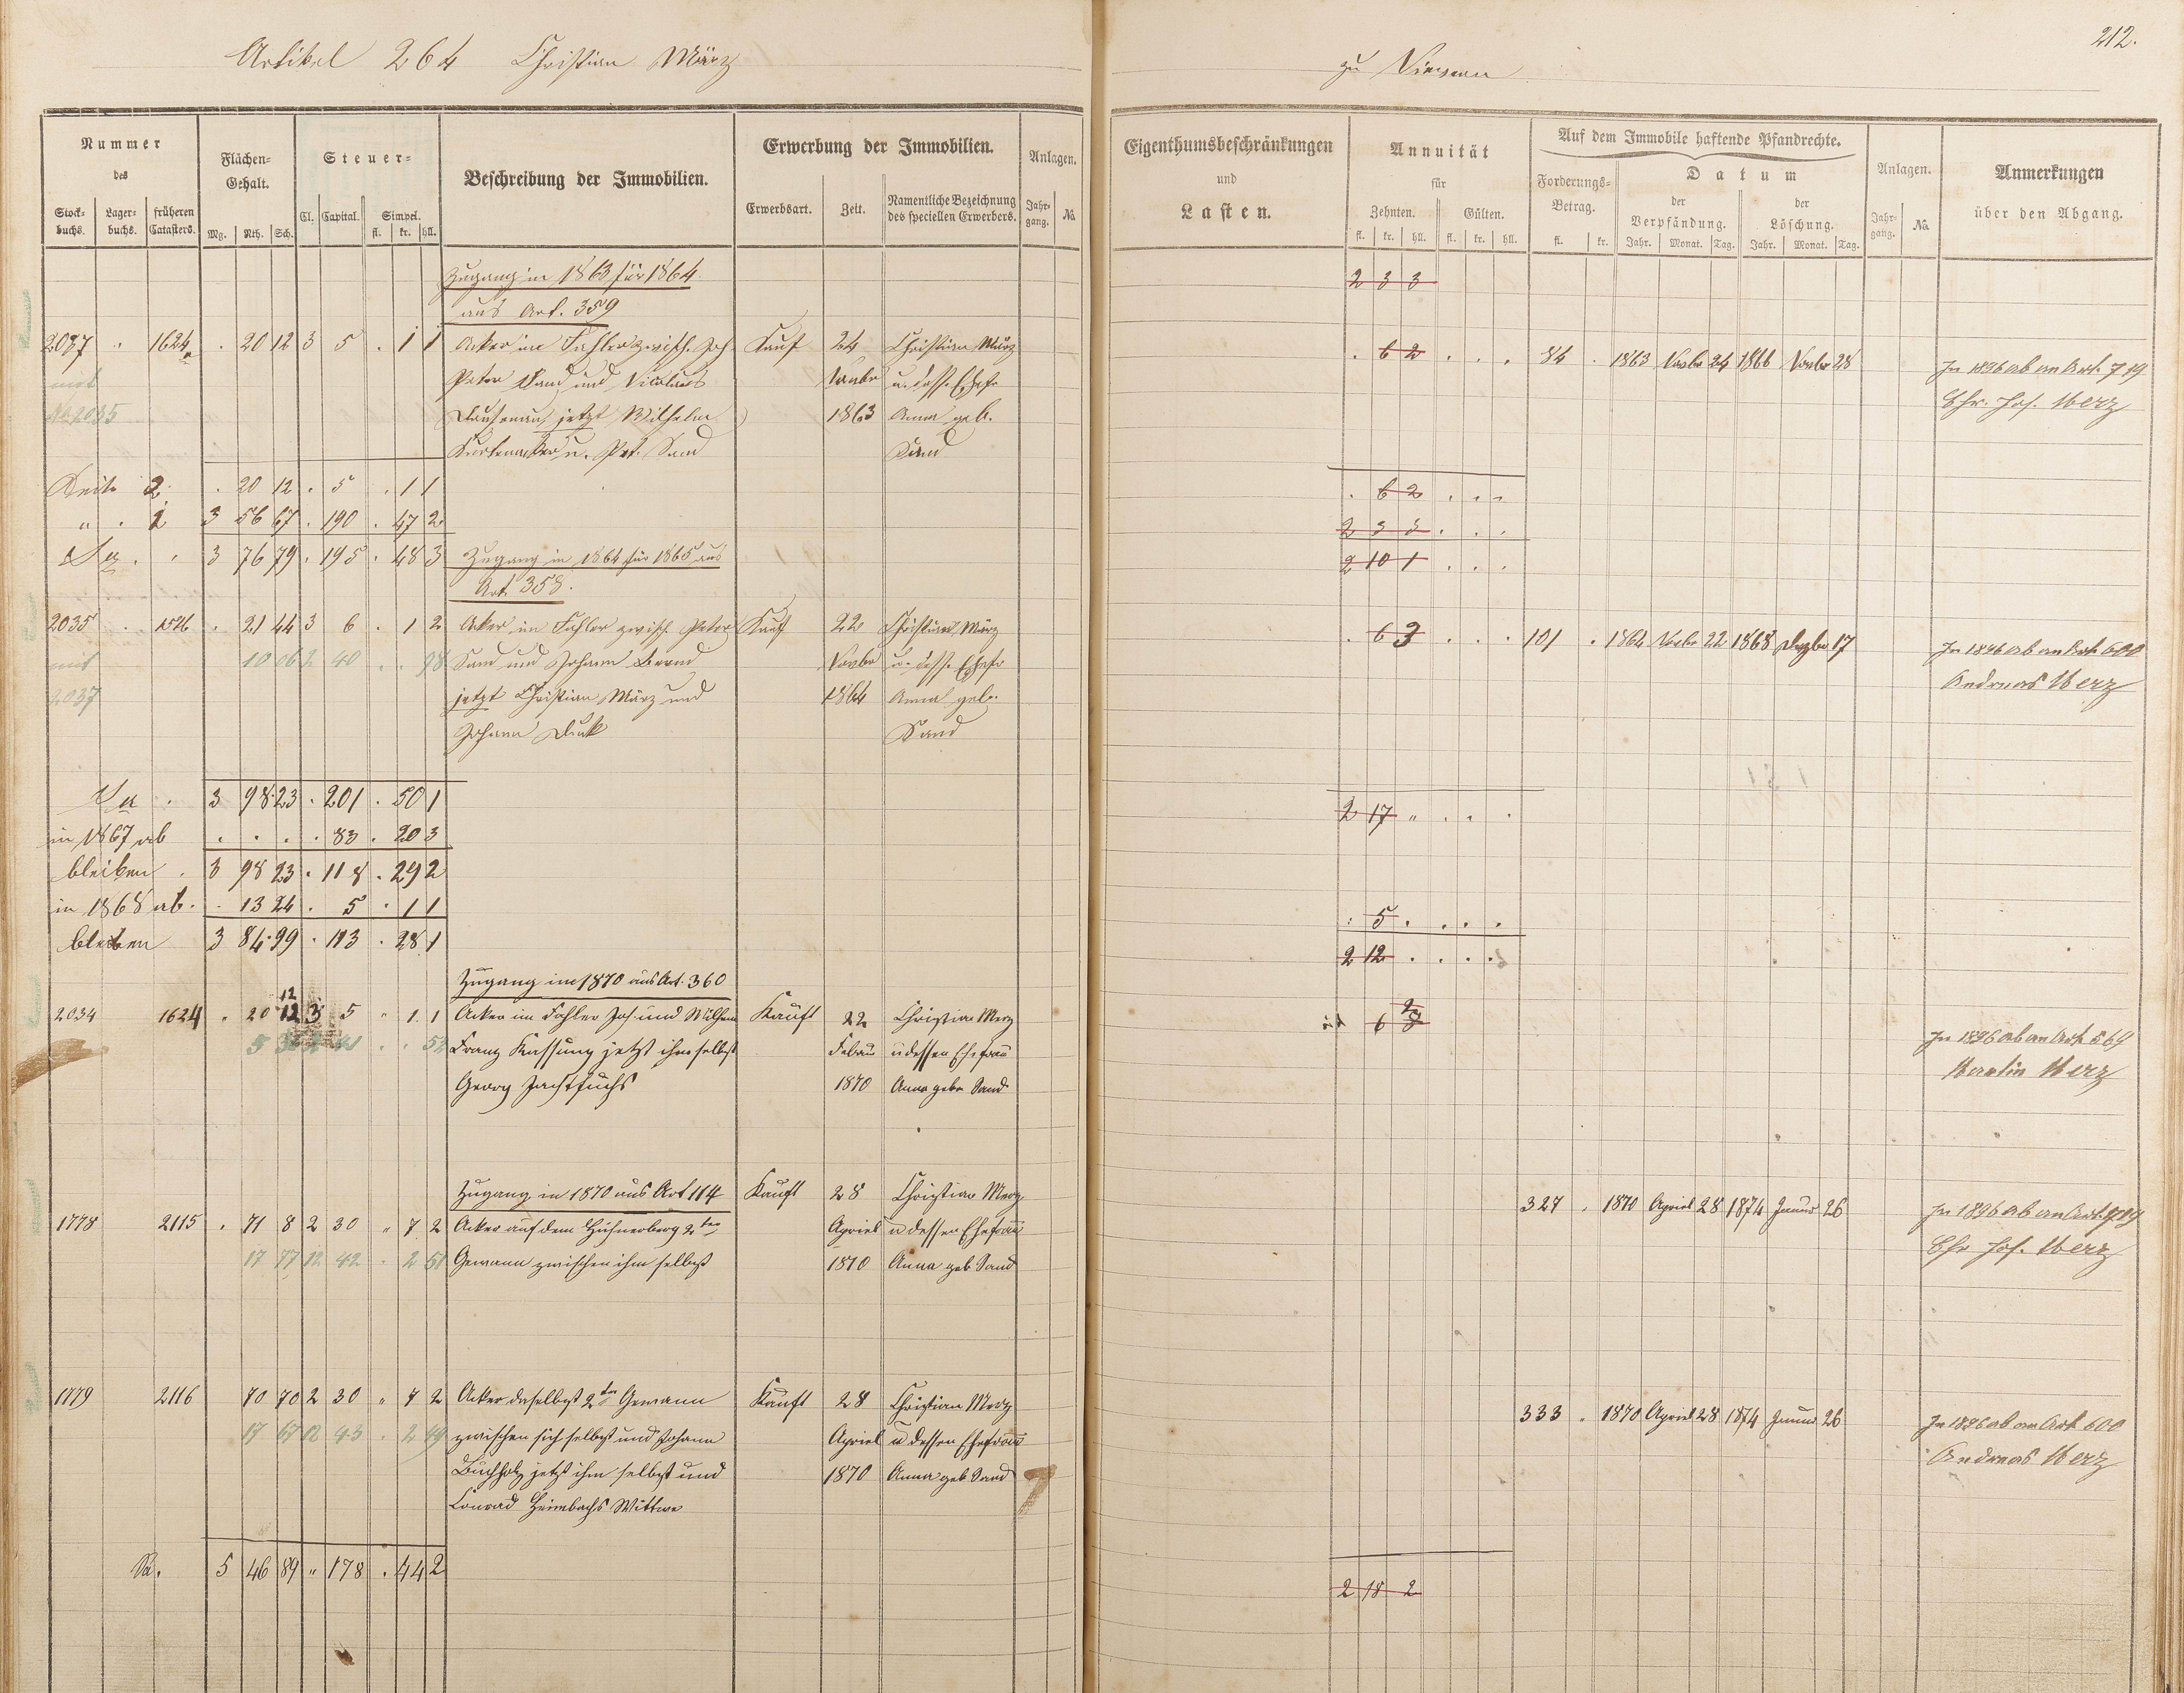 Artikel 264 Christian März
zu
212.
Nummer
des
Stock-
buchs.
Lager-
buchs.
früheren
Catasters.
Flächen-
Gehalt.
Mg. Rth. Sch.
Steuer-
Cl. Capital. Simpel.
fl. kr. hll.
Beschreibung der Immobilien.
Erwerbung der Immobilien.
Erwerbsart. Zeit.
Namentliche Bezeichnung
des speciellen Erwerbers.
Anlagen.
Jahr-
gang.
No.
Eigenthumsbeschränkungen
und
Lasten.
Annuität
für
Zehnten. Gülten.
fl. kr. hll. fl. kr. hll.
Auf dem Immobile haftende Pfandrechte.
Forderungs-
Betrag.
fl. kr.
Datum
der
Verpfändung.
Jahr. Monat. Tag.
der
Löschung.
Jahr. Monat. Tag.
Anlagen.
Jahr-
gang.
No.
Anmerkungen
über den Abgang.
Zugang in 1863 für 1864. 2 3 3
aus Art. 359
2037 . 1624a . 20 12 3 5 . 1 1 Acker im Fahler zwisch. Joh Kauf 24 Christian März . 6 2 . . . 84 . 1863 Novbr 24 1866 Novbr 28 In 1896 ab an Art. 719
mit Peter Sand und Nicolaus Novbr u. dess. Ehefr Chr. Jos. Merz
No 2035 jetzt Wilhelm 1863 Anna geb.
u. Pet. Sand Sand
Seite 2. . 20 12 . 5 . 1 1 . 6 2 . . .
" . 1 3 56 67 . 190 . 47 2 2 3 3 . . .
Sa . . 3 76 79 . 195 . 48 3 Zugang in 1864 für 1865 aus 2 10 1 . . .
Art. 358.
2035 . 1526 . 21 44 3 6 . 1 2 Acker im Fahler zwisch. Peter Kauf 22 Christian März . 6 3 . . . 101 . 1864 Novbr 22 1868 Dezbr 17 In 1896 ab an Art. 600
mit 10 06 2 40 . . 98 Sand und Johann Novbr u. dess. Ehefr Andreas Merz
2037 jetzt Christian März und 1864 Anna geb.
Johann Sand
Sa . 3 98 23 . 201 . 50 1 2 17 " . . .
in 1867 ab . . . . 83 . 20 3
bleiben . 3 98 23 . 118 . 29 2
in 1868 ab . . 13 24 . 5 . 1 1 . 5 . . . .
bleiben 3 84 99 . 113 . 28 1 2 12 . . . .
Zugang in 1870 aus Art. 360
2034 1624 " 20 12 3 5 " 1 1 Acker im Fahler Joh und Wilhem Kauft 22 Christian Merz 6 In 1896 ab an Art. 569
Franz jetzt ihm selbst u dessen Ehefrau Martin Merz
Georg 1870 Anna gebr Sand
Zugang in 1870 aus Art 114 Kauft 28 Christian Merz 327 . 1870 Apriel 28 1874 Januar 26 In 1896 ab an Art. 719
1778 2115 . 71 8 2 30 " 7 2 Acker auf dem Hühnerberg 2ter Apriel u dessen Ehefrau Chr Jos. Merz
17 77 12 42 . 2 51 Gewann zwischen ihm selbst 1870 Anna geb Sand
1779 2116 70 70 2 30 " 7 2 Acker daselbst 2ter Gewann Kauft 28 Christian Merz 333 " 1870 Apriel 28 1874 Januar 26 In 1896 ab an Art. 600
17 67 12 43 . 2 49 zwischen sich selbst und Johann Apriel u dessen Ehefrau Andreas Merz
Buchholz jetzt ihm selbst und 1870 Anna geb Sand
Conrad Heimbachs Wittwe
Sa. 5 46 89 " 178 . 44 2 2 18 2